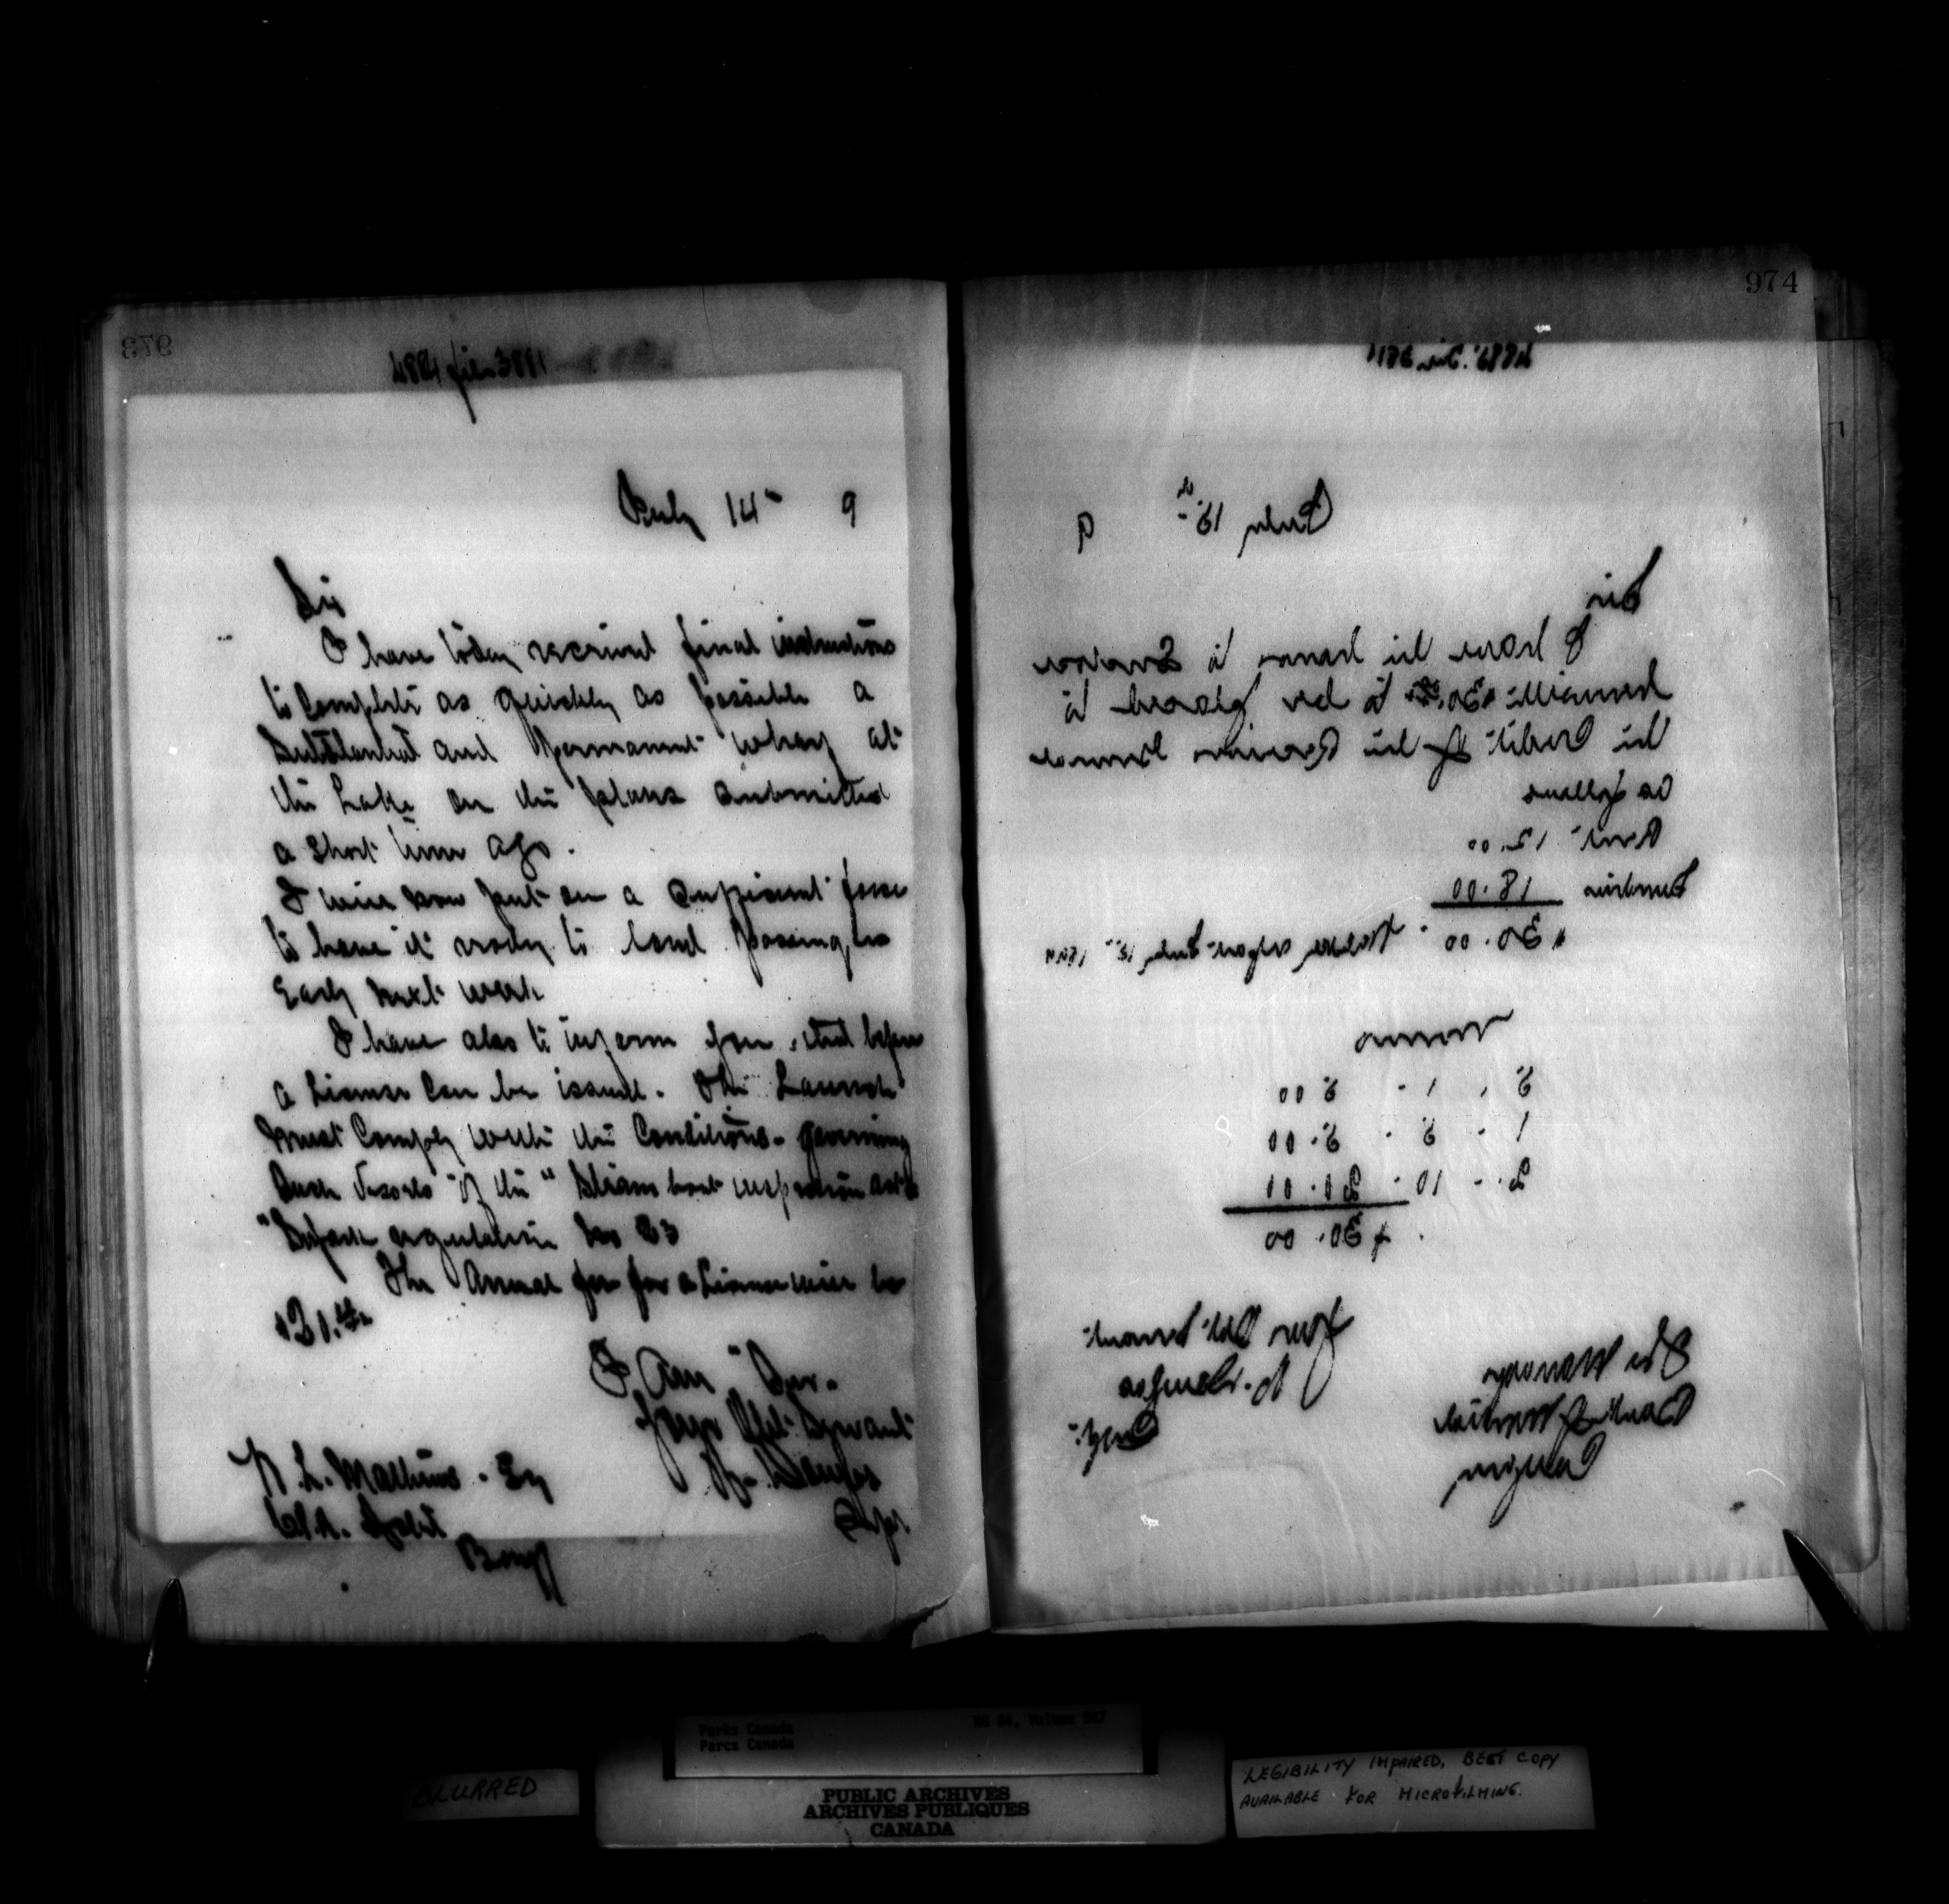 973
4884 file 3891
July 14th 9
Sir
I have today received final instructions
to complete as quickly as possible a
Substantial and Permanent wharf at
the Lake on the plans submitted
a short time ago.
I will now put on a sufficient force
to have it ready to land passengers
Early next week
I have also to inform you that before
a License can be issued. The Launch
must comply with the Conditions governing
Such Vessels of the "Steam boat inspection act"
regulation No 23
The Annual fee for a License will be
I Am Sir.
Your Obt Servant
N. L. Mathews. Esq
Supt.
Agent
Banff
974
July 15th 9
Sir
I have the honor to Enclose
herewith $30.00 to be placed to
the Credit of the Receiver General
as follows
Rent 12.00
18.00
$30.00 . report July 15th
5 . 1 . 5 00
1 . 5 . 5.00
2 . 10 . 20.00
$30.00
Your Obt Servant
Supt.
The Manager
Bank of Montreal
Calgary
Parks Canada
Parcs Canada
RG 84, Volume 567
BLURRED
PUBLIC ARCHIVES
ARCHIVES PUBLIQUES
CANADA
LEGIBILITY IMPAIRED, BEST COPY
AVAILABLE FOR MICROFILMING.